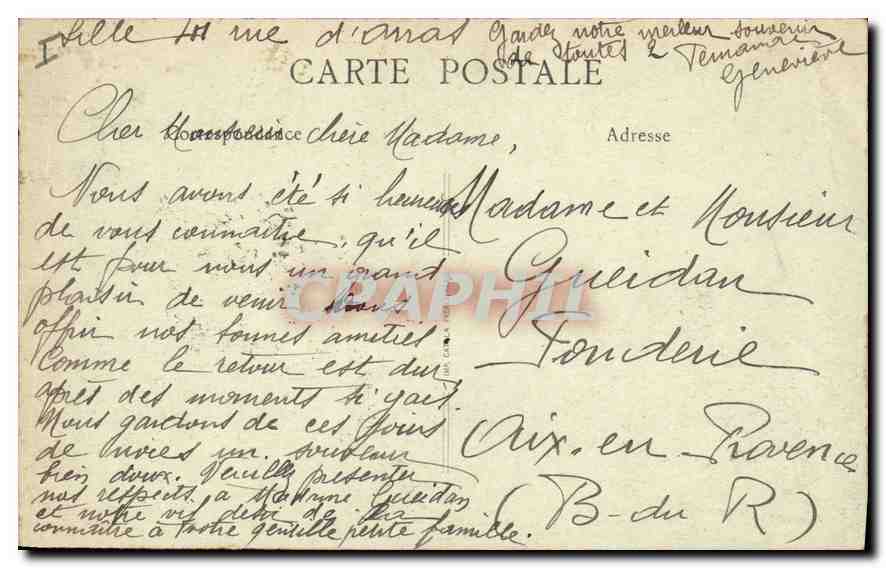 Lille 111 rue d'arras
Gardez notre meilleur souvenir
de toutes 2
Geneviève
CARTE POSTALE
Correspondance
Adresse
Cher Monsieur chère Madame,
Nous avons été si heureuses
de vous connaître, qu'il
est pour nous un grand
plaisir de venir vous
offrir nos bonnes amitiés
Comme le retour est dur
après des moments si gais.
Nous gardons de ces jours
de noces un souvenir
bien doux. Veuillez présenter
nos respects à Madame Gueidan
et notre vif désir de la
connaître à votre gentille petite famille.
Madame et Monsieur
Gueidan
Fonderie
Aix-en-Provence
(B-du R)
CPAPHIL